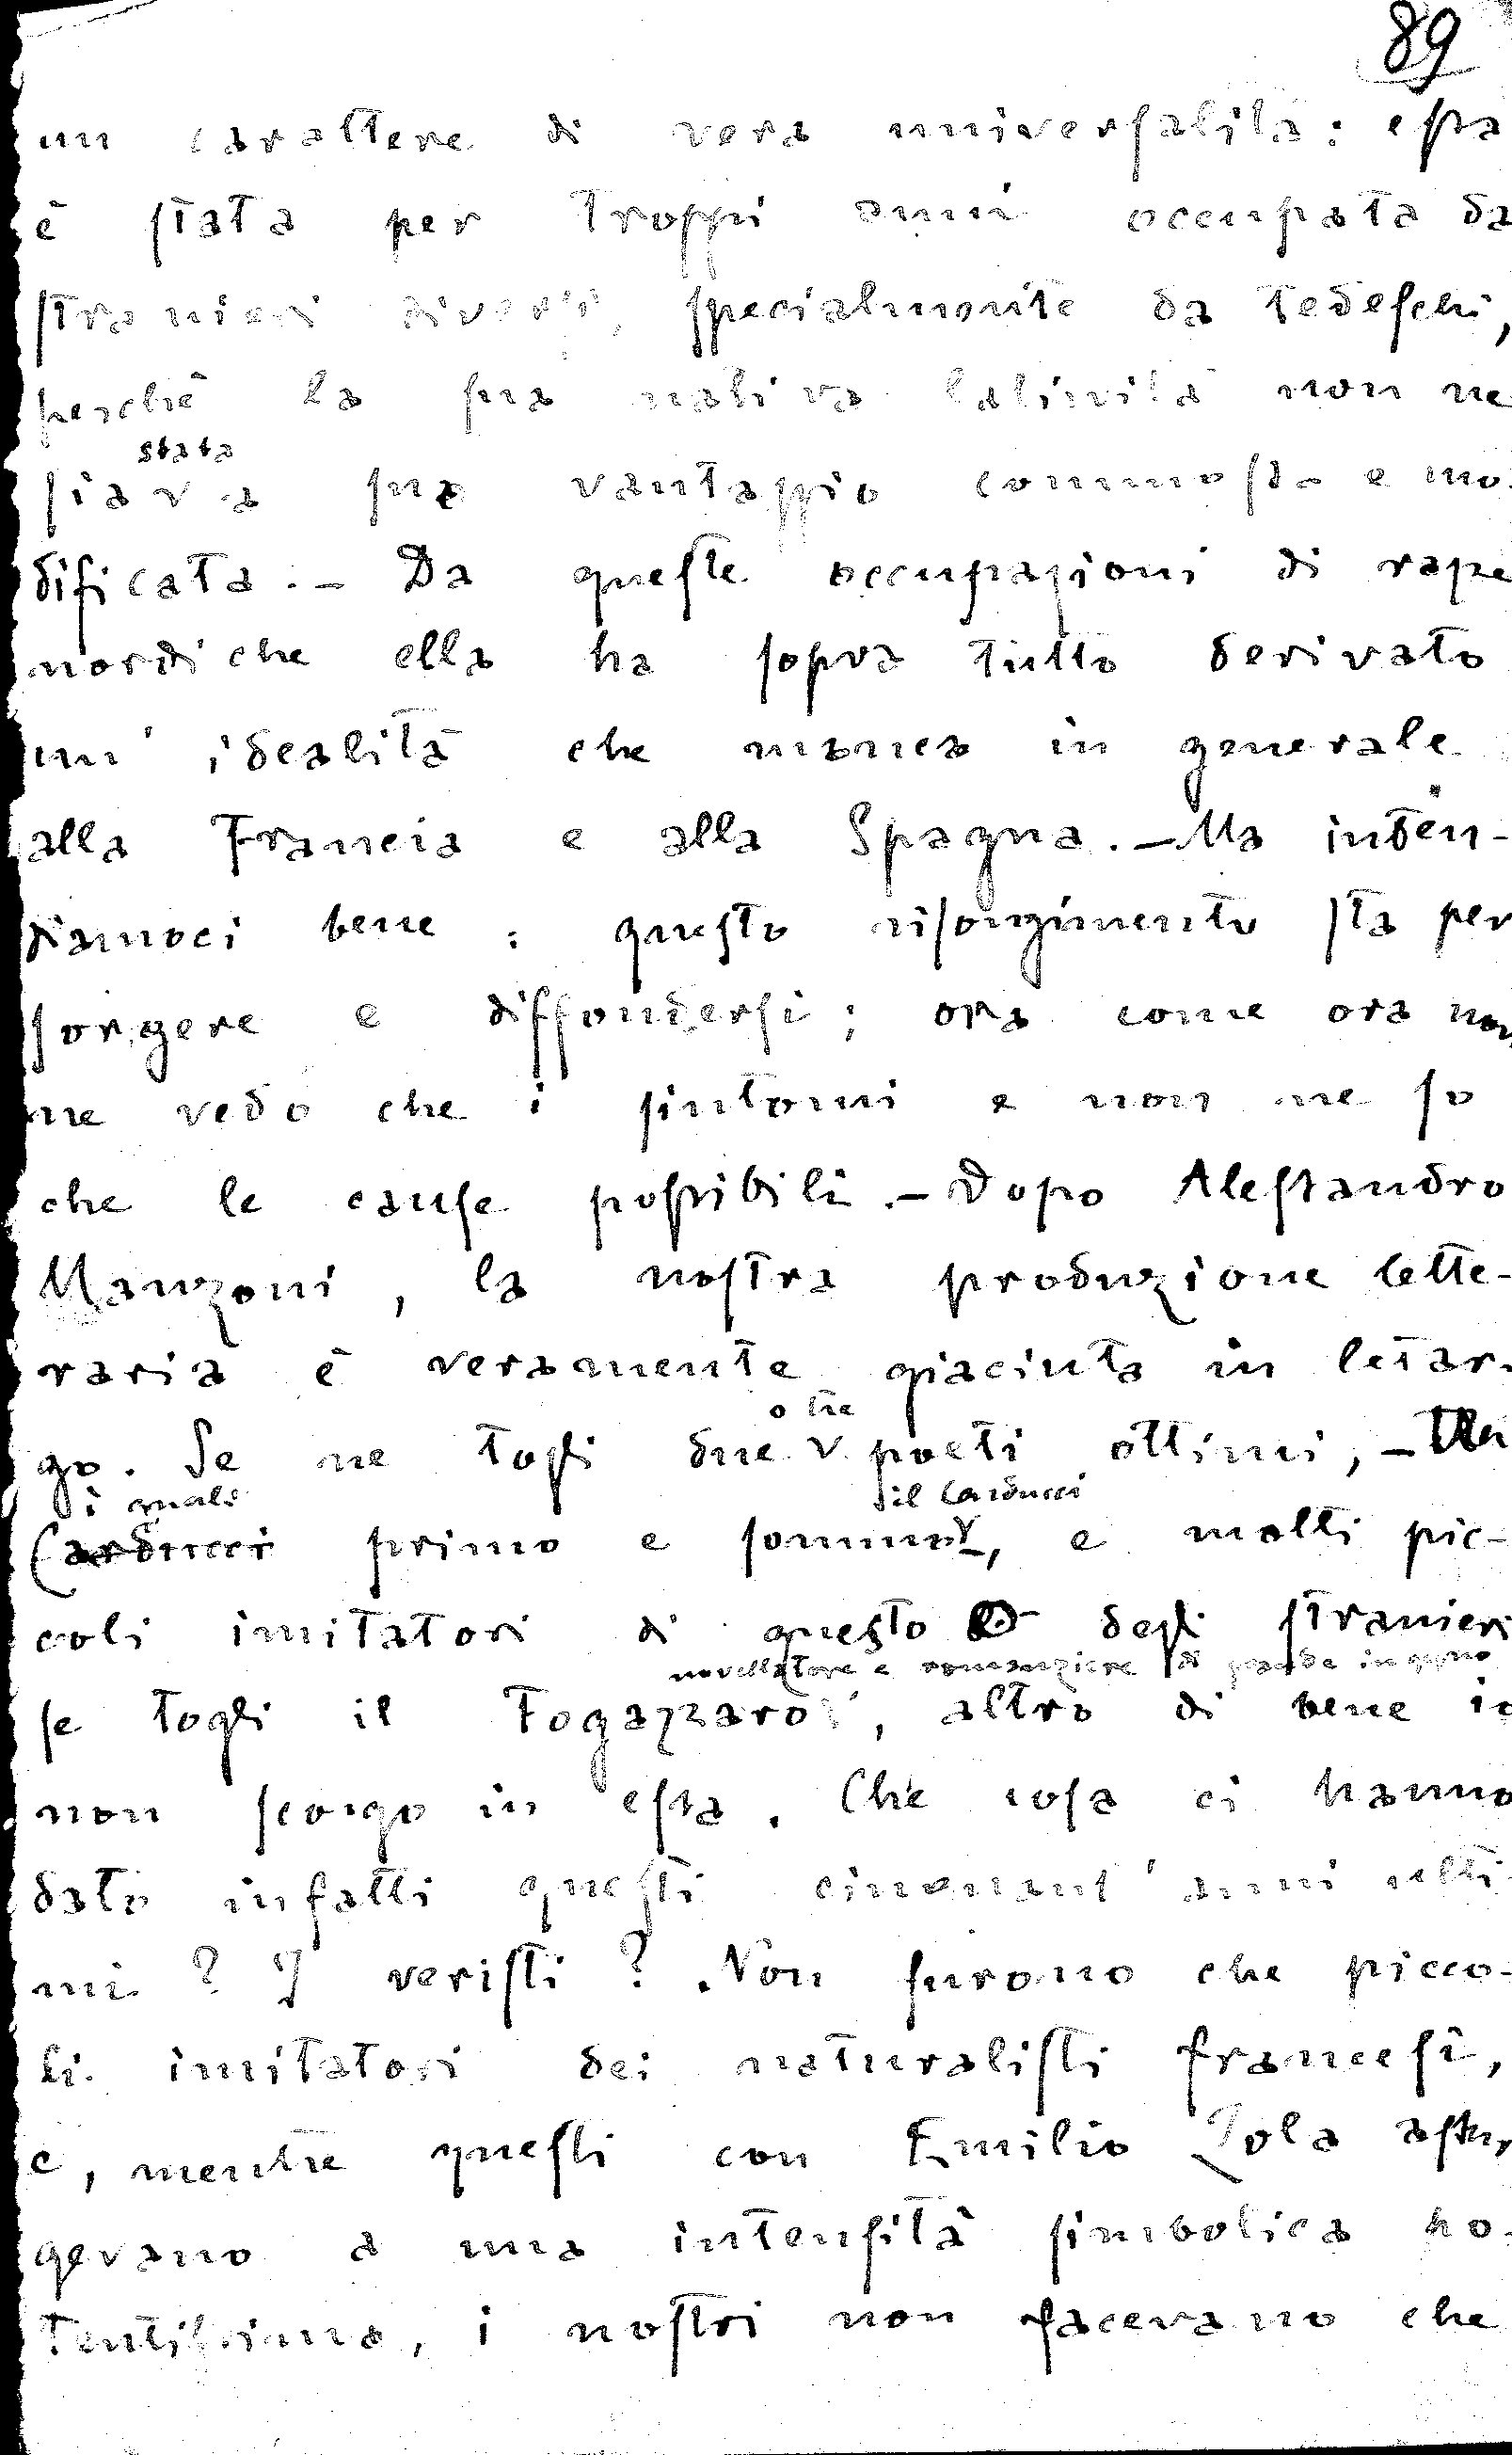 89
un carattere di vera universalità: essa
è stata per troppi anni occupata da
stranieri diversi, specialmente da tedeschi,
perchè la sua nativa latinità non ne
stata
sia v a suo vantaggio commossa e mo-
dificata. - Da queste occupazioni di razze
nordiche ella ha sopra tutto derivato
un' idealità che manca in generale
alla Francia e alla Spagna. - Ma inten-
diamoci bene: questo risorgimento sta per
sorgere e diffondersi; ora come ora non
ne vedo che i sintomi e non ne so
che le cause possibili. - Dopo Alessandro
Manzoni, la nostra produzione lette-
raria è veramente giaciuta in letar-
o tre
go. Se ne togli due v poeti ottimi, -
i quali il Carducci
Carducci primo e sommo v, e molti pic-
coli imitatori di questo degli stranieri
novellatore e romanziere di grande ingegno
se togli il Fogazzaro, altro di bene io
non scorgo in essa. Che cosa ci hanno
dato infatti questi cinquant'anni ulti-
mi? I veristi? Non furono che picco-
li imitatori dei naturalisti francesi,
e, mentre questi con Emilio Zola assur-
gevano a una intensità simbolica po-
tentissima, i nostri non facevano che